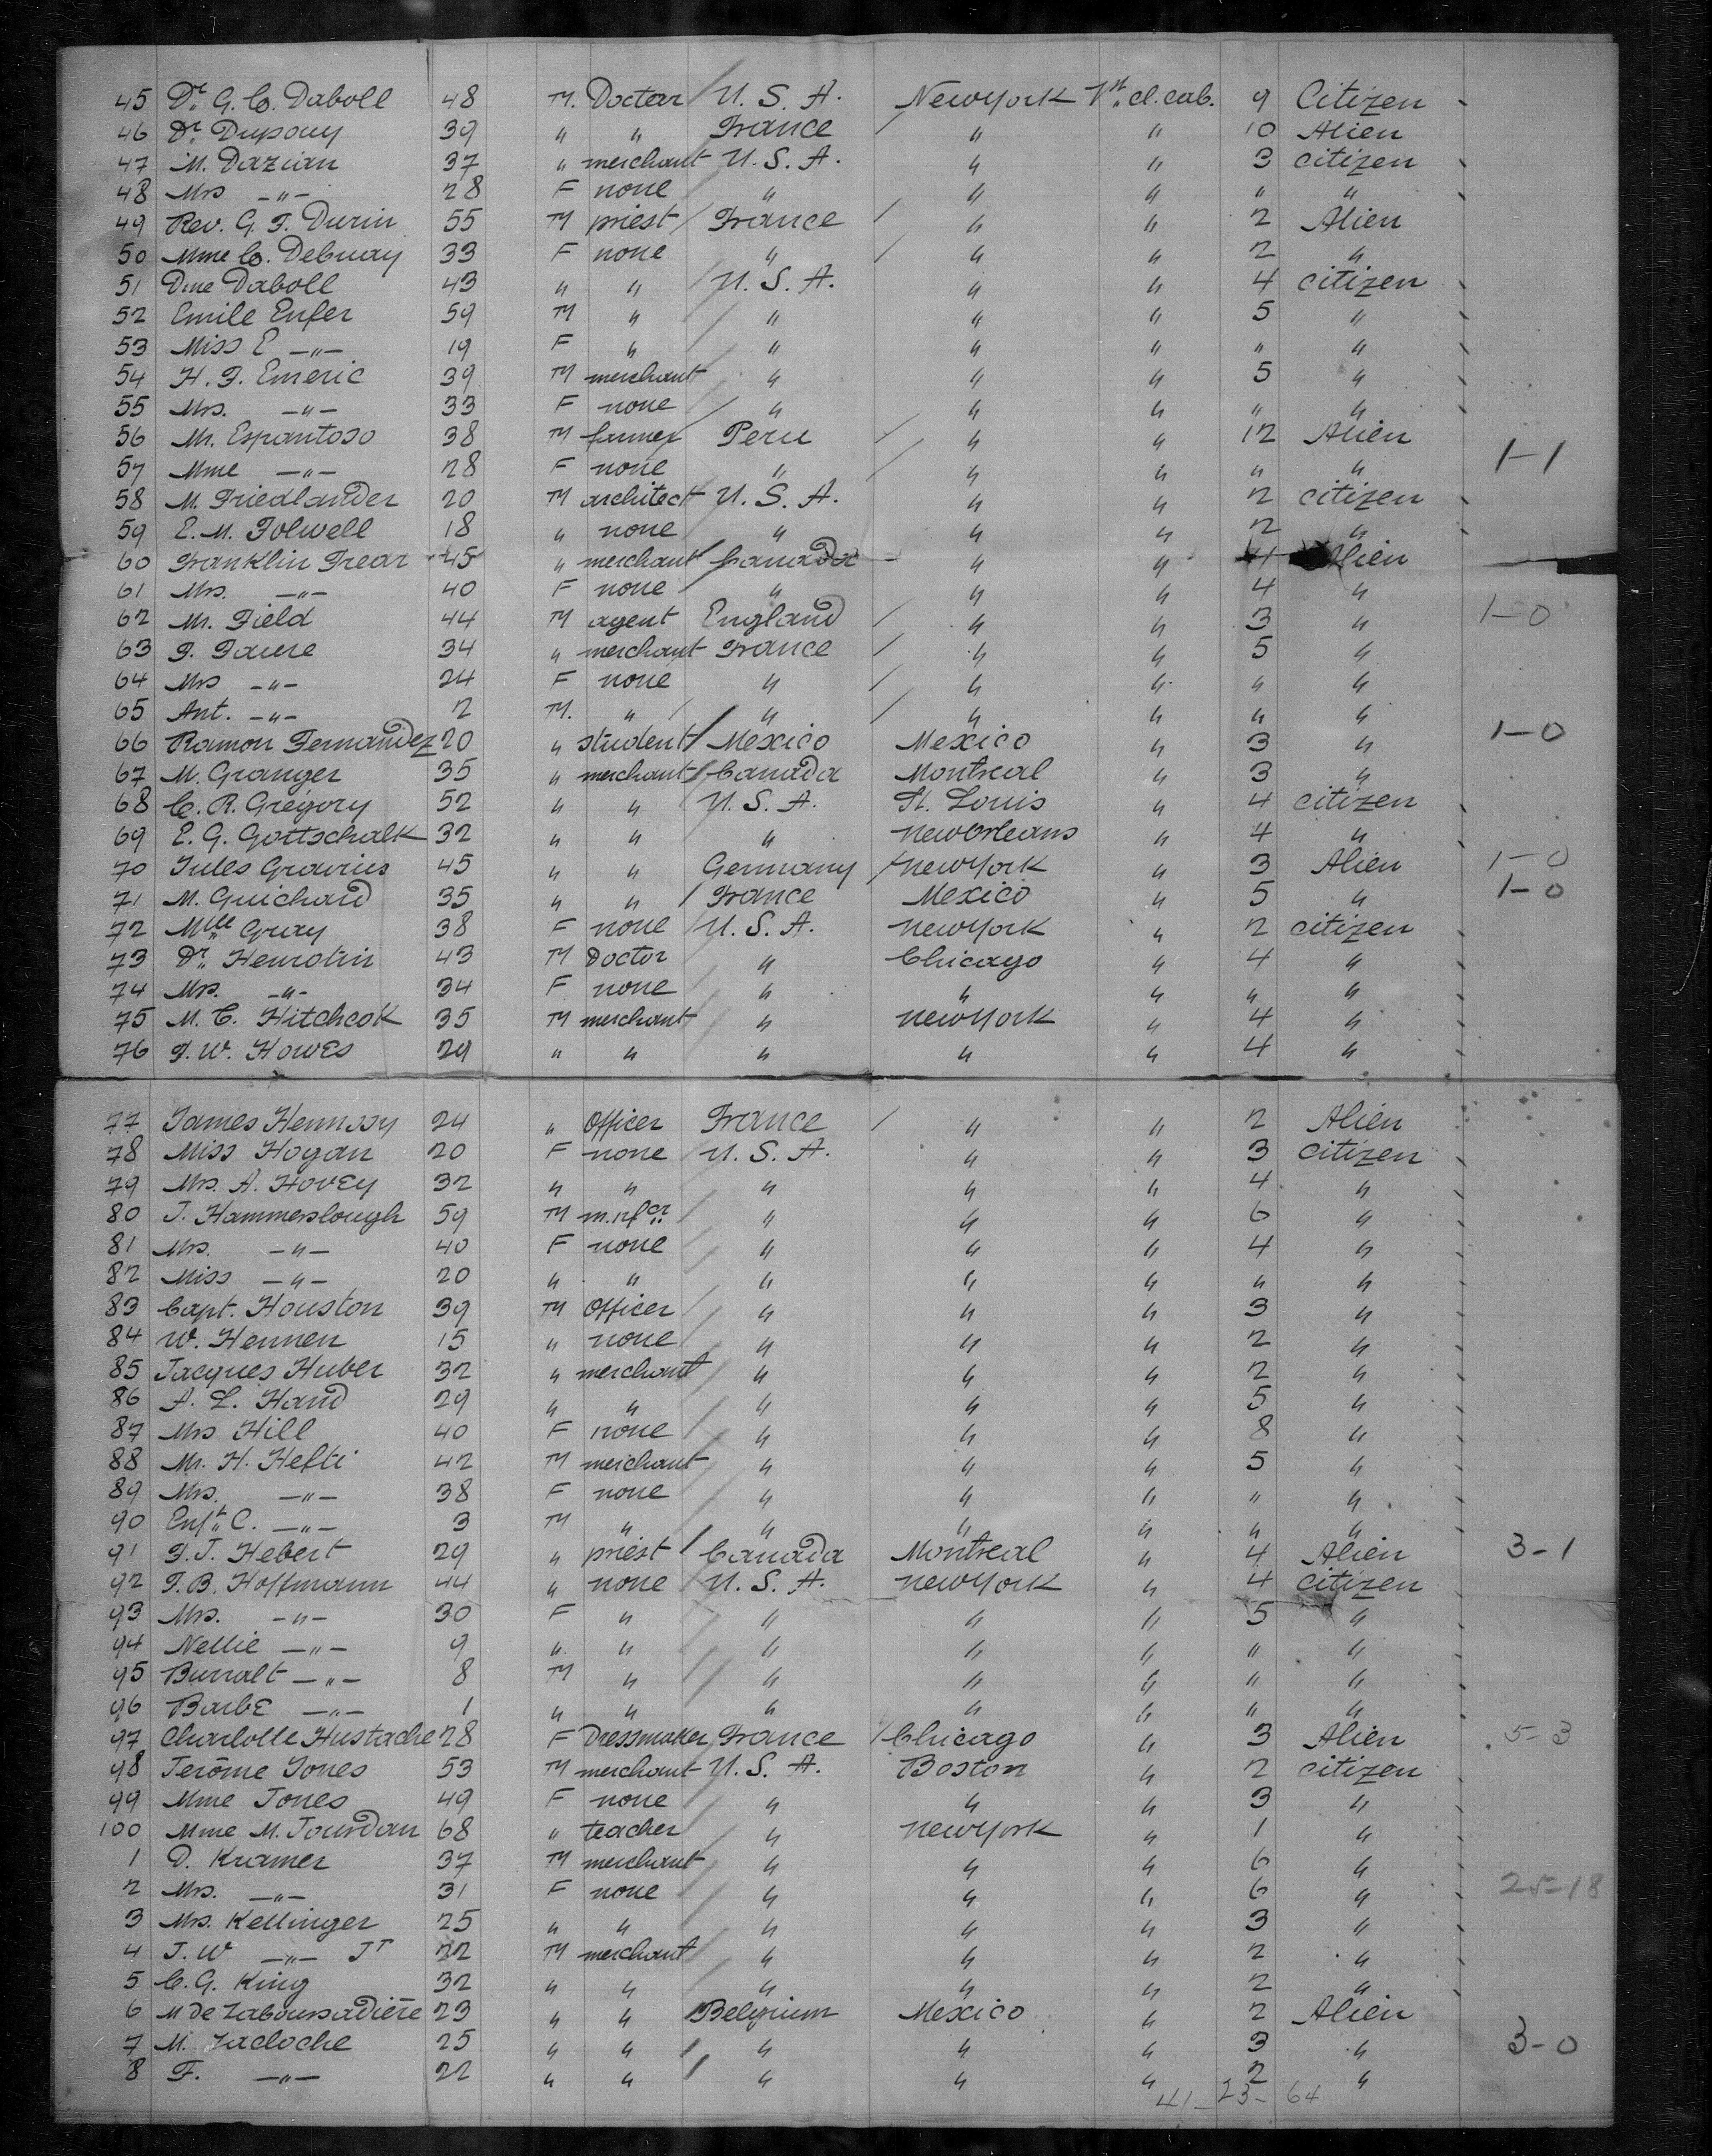 45 Dr. G. C. Daboll 48 M. Doctor U. S. A. New York 1st cl. cab. 9 Citizen
46 Dr. Dupouy 39 " " France " " 10 Alien
47 M. Dazian 37 " merchant U. S. A. " " 3 citizen
48 Mrs -"- 28 F none " " " " "
49 Rev. G. F. Durin 55 M priest France " " 2 Alien
50 Mme C. Debuay 33 F none " " " 2 "
51 Dme Daboll 43 " " U. S. A. " " 4 citizen
52 Emile Enfer 59 M " " " " 5 "
53 Miss E -"- 19 F " " " " " "
54 H. F. Emeric 39 M merchant " " " 5 "
55 Mrs. -"- 33 F none " " " " "
56 Mr. Espantoso 38 M farmer Peru " " 12 Alien
57 Mme -"- 28 F none " " " " " 1-1
58 M. Friedlander 20 M architect U. S. A. " " 2 citizen
59 E. M. Folwell 18 " none " " " 2 "
60 Franklin Frear 45 " merchant Canada " " 4 Alien
61 Mrs. -"- 40 F none " " " 4 "
62 Mr. Field 44 M agent England " " 3 " 1-0
63 F. Faure 34 " merchant France " " 5 "
64 Mrs -"- 24 F none " " " " "
65 Ant. -"- 2 M. " " " " " "
66 Ramon Fernandez 20 " student Mexico Mexico " 3 " 1-0
67 M. Granger 35 " merchant Canada Montreal " 3 "
68 C. R. Gregory 52 " " U. S. A. St. Louis " 4 citizen
69 E. G. Gottschalk 32 " " " New Orleans " 4 "
70 Jules Gravius 45 " " Germany New York " 3 Alien 1-0
71 M. Guichard 35 " " France Mexico " 5 " 1-0
72 Mlle Gray 38 F none U. S. A. New York " 2 citizen
73 Dr. Henrotin 43 M Doctor " Chicago " 4 "
74 Mrs. -"- 34 F none " " " " "
75 M. C. Hitchcok 35 M merchant " New York " 4 "
76 F. W. Howes 29 " " " " " 4 "
77 James Hennssy 24 " Officer France " " 2 Alien
78 Miss Hogan 20 F none U. S. A. " " 3 citizen
79 Mrs. A. Hovey 32 " " " " " 4 "
80 J. Hammerslough 59 M m.nfcr " " " 6 "
81 Mrs. -"- 40 F none " " " 4 "
82 Miss -"- 20 " " " " " " "
83 Capt. Houston 39 M Officer " " " 3 "
84 W. Hennen 15 " none " " " 2 "
85 Jacques Huber 32 " merchant " " " 2 "
86 A. L. Hand 29 " " " " " 5 "
87 Mrs Hill 40 F none " " " 8 "
88 Mr. H. Hefti 42 M merchant " " " 5 "
89 Mrs. -"- 38 F none " " " " "
90 Enft. C. -"- 3 M " " " " " "
91 F. J. Hebert 29 " priest Canada Montreal " 4 Alien 3-1
92 F. B. Hoffmann 44 " none U. S. A. New York " 4 citizen
93 Mrs. -"- 30 F " " " " 5 "
94 Nellie -"- 9 " " " " " " "
95 Burralt -"- 8 M " " " " " "
96 Barbe -"- 1 " " " " " " "
97 Charlotte Hustache 28 F Dressmaker France Chicago " 3 Alien 5-3
98 Jerôme Jones 53 M merchant U. S. A. Boston " 2 citizen
99 Mme Jones 49 F none " " " 3 "
100 Mme M. Jourdan 68 " teacher " New York " 1 "
1 D. Kramer 37 M merchant " " " 6 "
2 Mrs. -"- 31 F none " " " 6 " 25-18
3 Mrs. Kellinger 25 " " " " " 3 "
4 J. W -"- Jr 22 M merchant " " " 2 "
5 C. G. King 32 " " " " " 2 "
6 M de Laboussadière 23 " " Belgium Mexico " 2 Alien
7 M. Lacloche 25 " " " " " 3 " 3-0
8 F. -"- 22 " " " " " 2 "
41-23-64